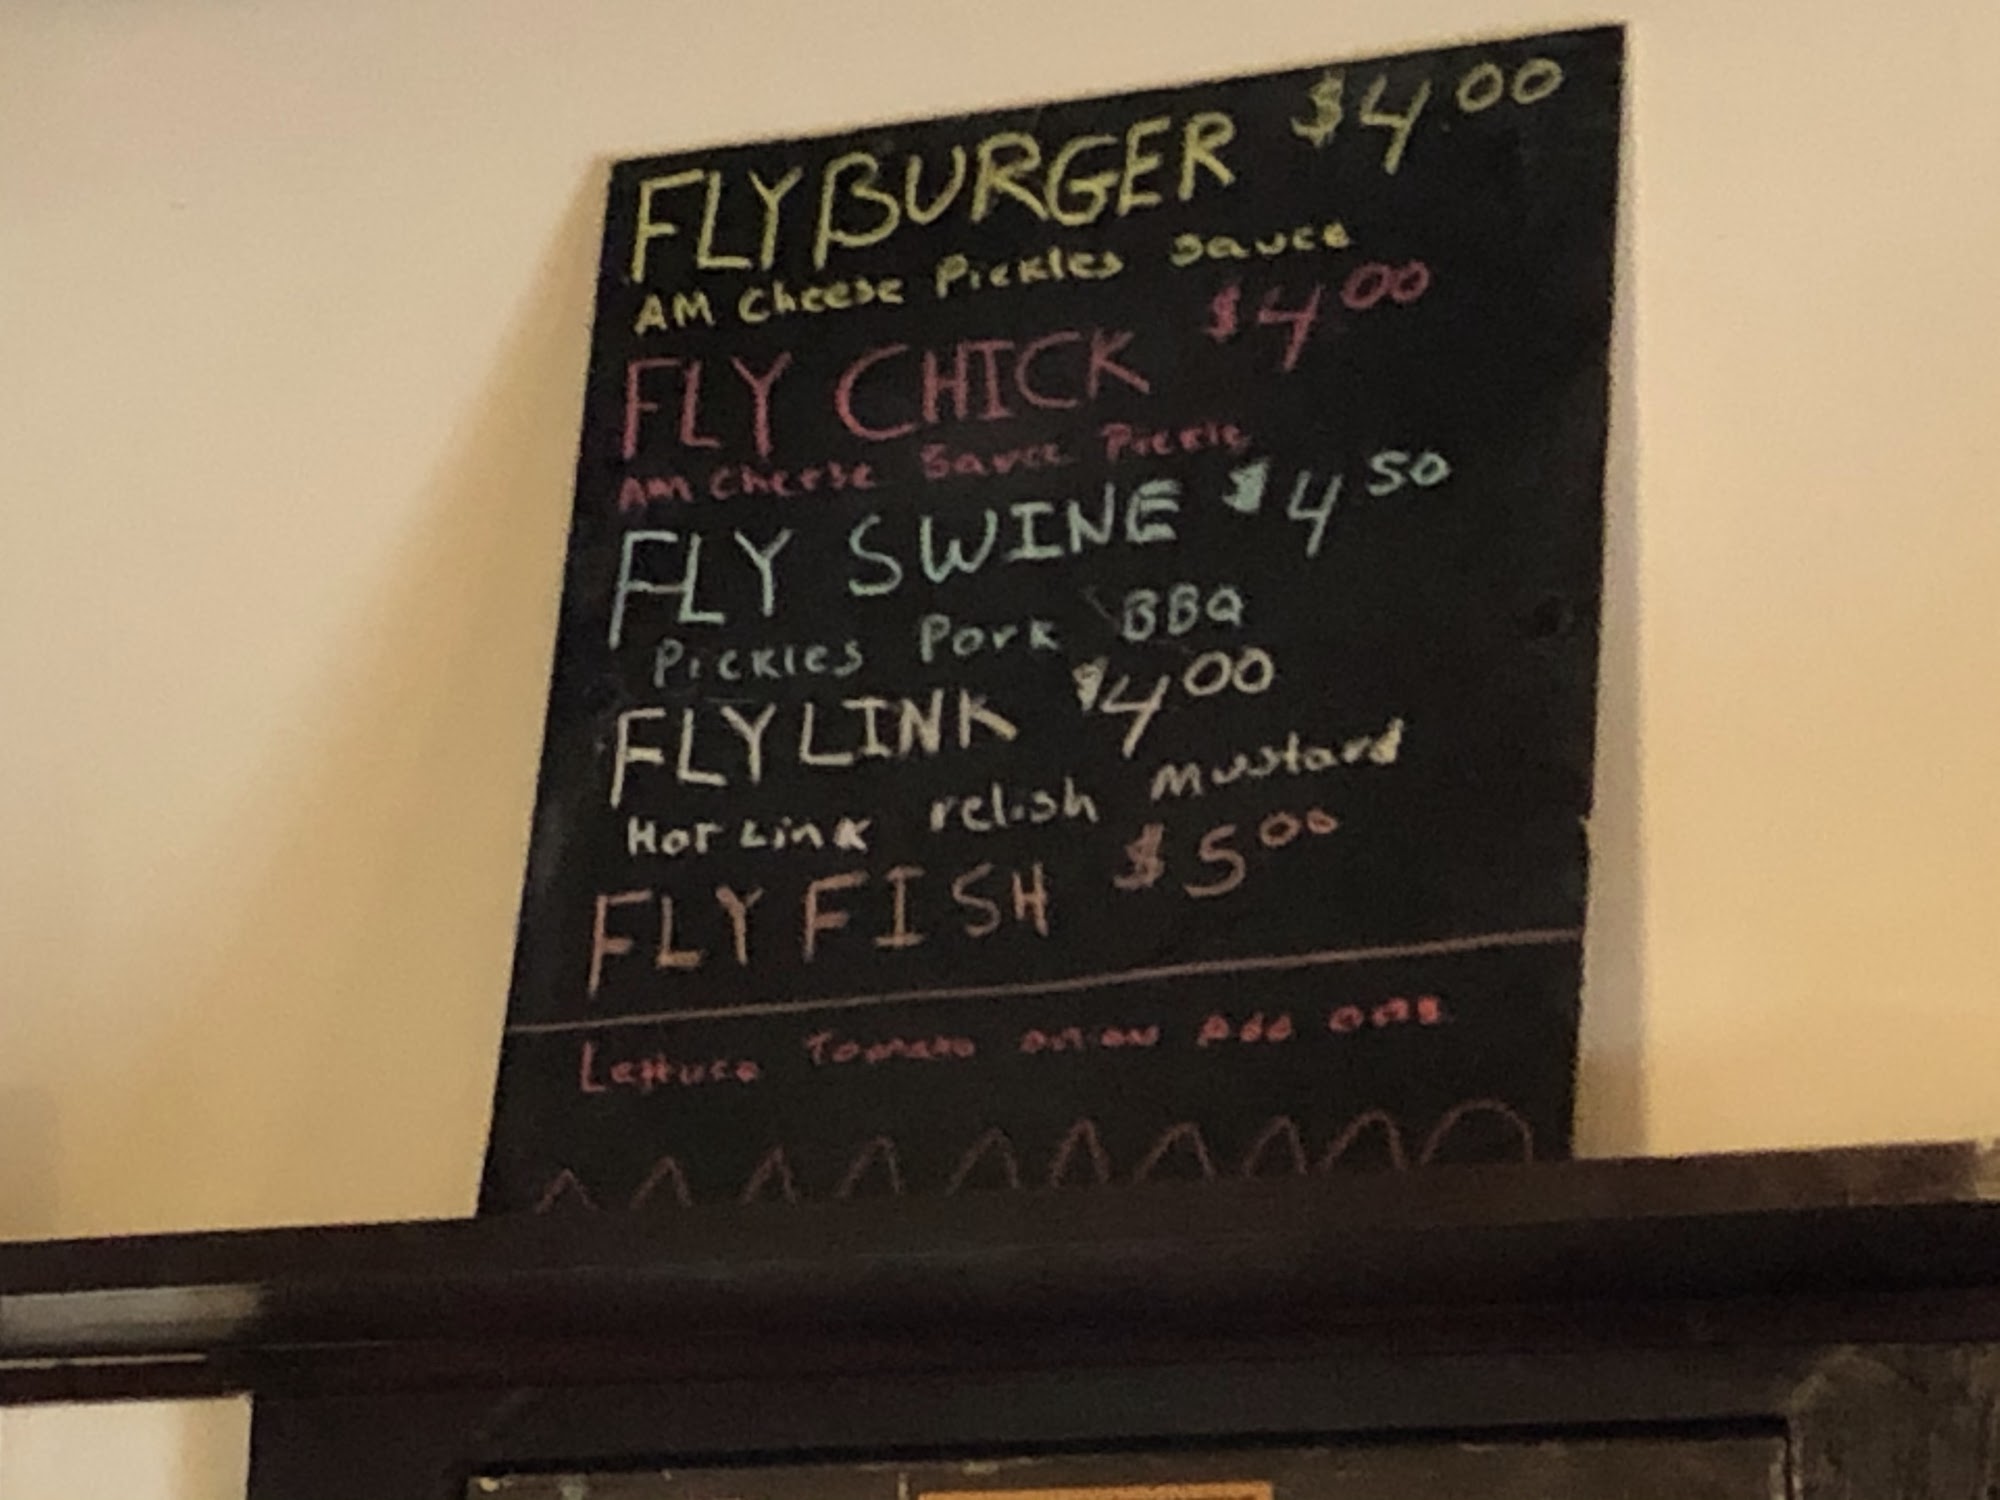 FLY BURGER $4.00
AM Cheese Pickles Sauce
FLY CHICK $4.00
AM Cheese Sauce Pickle
FLY SWINE $4.50
Pickles Pork BBQ
FLY LINK $4.00
Hot Link relish Mustard
FLY FISH $5.00
Lettuce Tomato onion Add ons